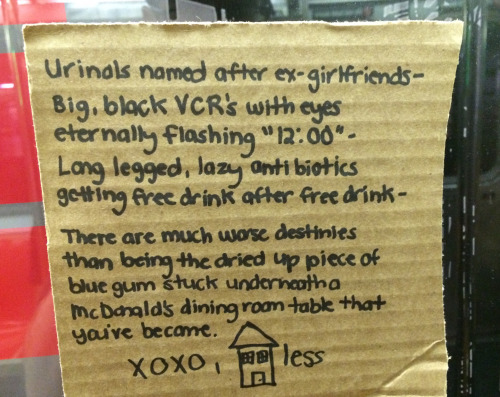 Urinals named after ex-girlfriends-
Big, black VCR's with eyes
eternally flashing "12:00"-
Long legged, lazy anti biotics
getting free drink after free drink-
There are much worse destinies
than being the dried up piece of
blue gum stuck underneath a
McDonald's dining room table that
you've become.
XOXO, less